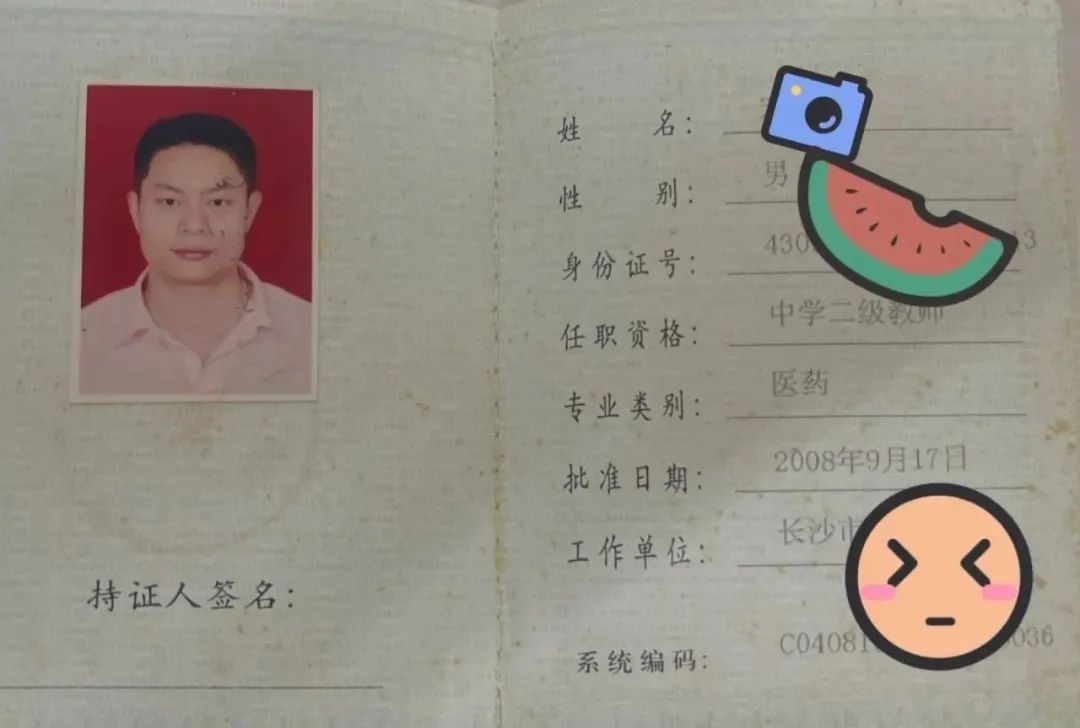 姓名:
性别: 男
身份证号: 430 13
任职资格: 中学二级教师
专业类别: 医药
批准日期: 2008年9月17日
工作单位: 长沙市
持证人签名:
系统编码: C04081 036